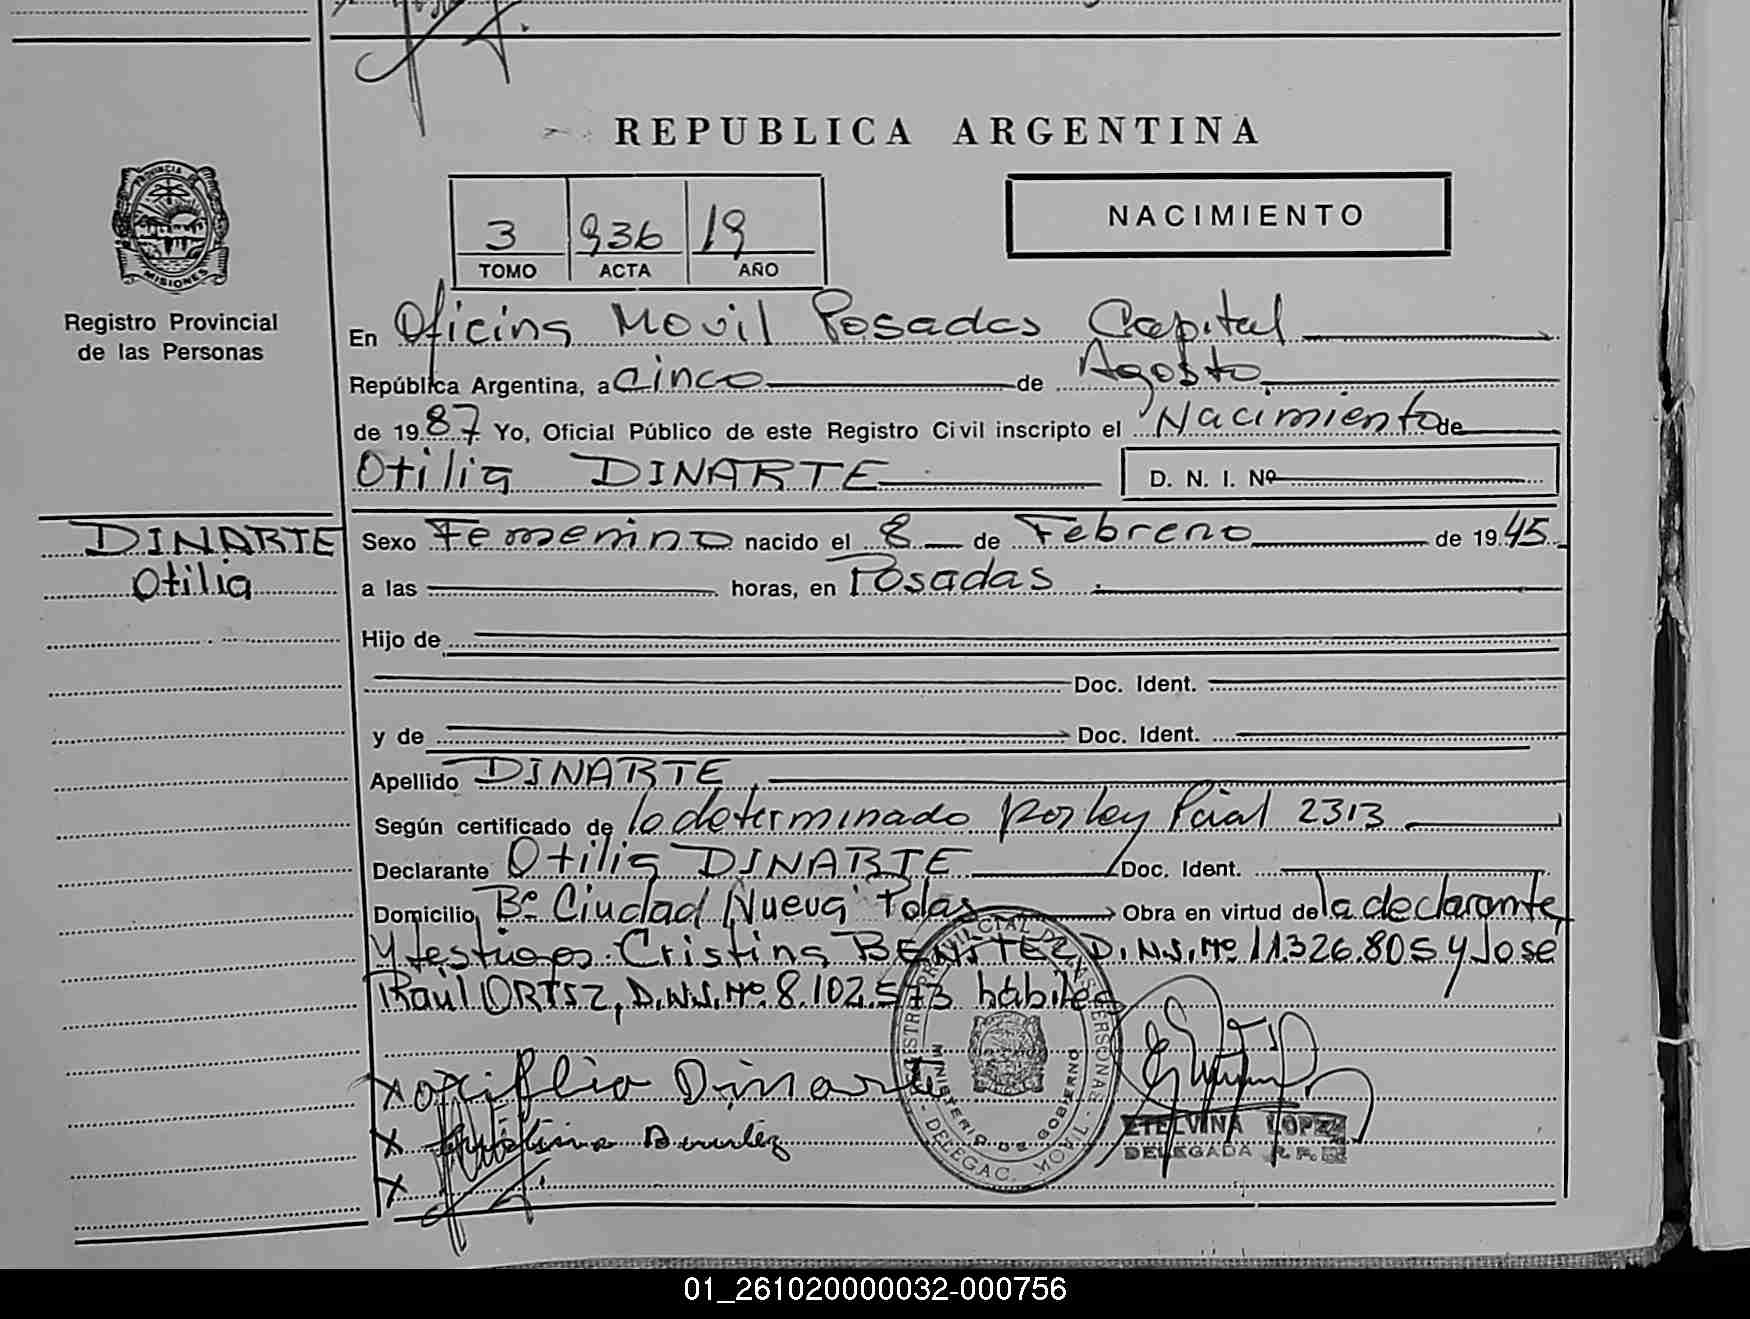 REPUBLICA ARGENTINA
PROVINCIA DE
MISIONES
Registro Provincial
de las Personas
3 936 19
TOMO ACTA AÑO
NACIMIENTO
En Oficina Movil Posadas Capital
República Argentina, a cinco de Agosto
de 1987 Yo, Oficial Público de este Registro Civil inscripto el Nacimiento de
Otilia DINARTE D. N. I. Nº
DINARTE
Otilia
Sexo Femenino nacido el 8 de Febrero de 1945
a las horas, en Posadas
Hijo de
Doc. Ident.
y de Doc. Ident.
Apellido DINARTE
Según certificado de lo determinado por ley Pcial 2313
Declarante Otilia DINARTE Doc. Ident.
Domicilio Bº Ciudad Nueva Pdas Obra en virtud de la declarante
y testigos Cristina BENITEZ, D.N.I. Nº 11.326.805 y Jose
Raúl ORTIZ, D.N.I. Nº 8.102.573 hábiles
x otiflia Dinarte
x Cristina Benitez
x
MINISTERIO DE GOBIERNO
DELEGAC. MOVIL
ETELVINA LOPEZ
DELEGADA R. P.
01_261020000032-000756